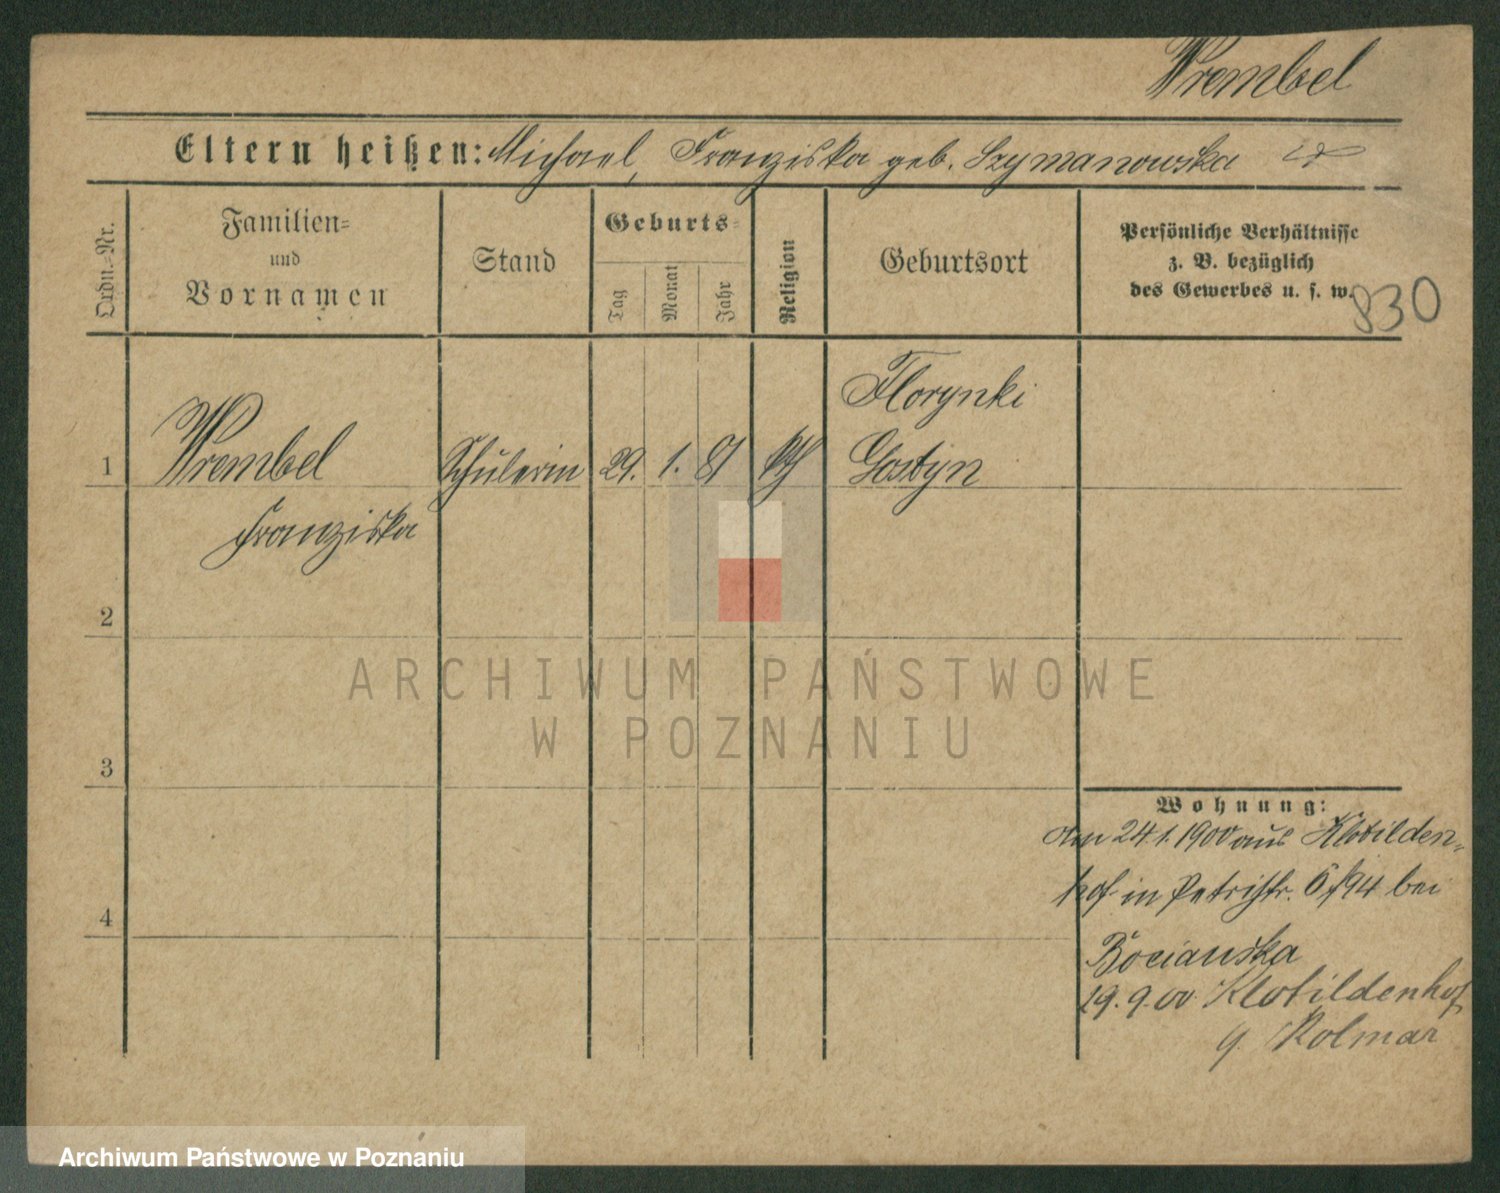 Wrembel
Eltern heißen: Michael, Franziska geb. Szymanowska
Ordn.-Nr.
Familien-
und
Vornamen
Stand
Geburts-
Tag
Monat
Jahr
Religion
Geburtsort
Persönliche Verhältnisse
z. B. bezüglich
des Gewerbes u. s. w.
830
1
Wrembel
Franziska
Schülerin
29. 1. 81
Florynki
Gostyn
2
3
4
ARCHIWUM PAŃSTWOWE
W POZNANIU
Wohnung:
Am 24.1.1900 aus Klotilden-
hof in Petristr. 6 /94 bei
Bocianska
19.9.00 Klotildenhof
Kolmar
Archiwum Państwowe w Poznaniu